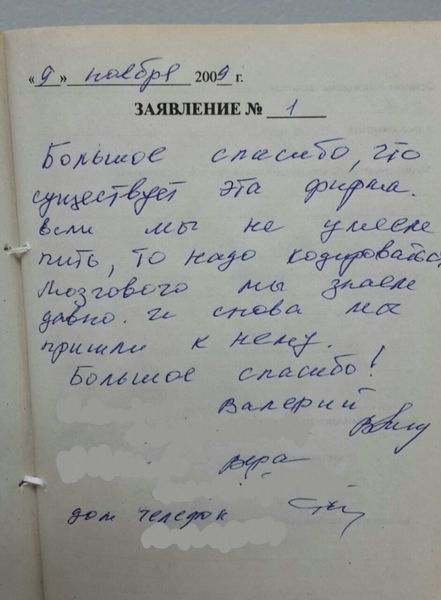 « 9 » ноября 2009 г.
ЗАЯВЛЕНИЕ № 1
Большое спасибо, что
существует эта фирма.
Если мы не умеем
пить, то надо кодироваться
Мозгового мы знаем
давно. И снова мы
пришли к нему.
Большое спасибо!
Валерий
Вера
дом телефон